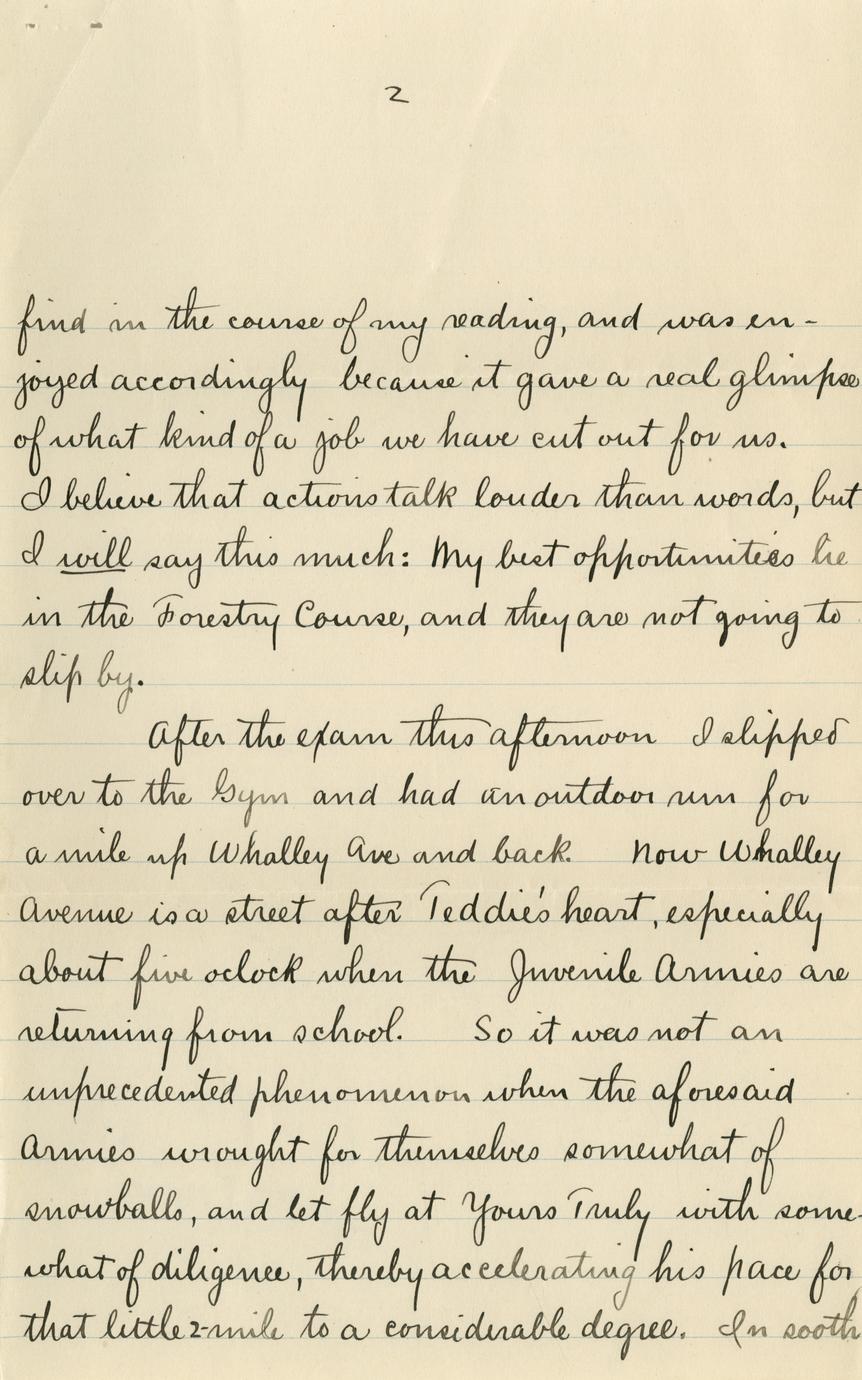 2
find in the course of my reading, and was en-
joyed accordingly because it gave a real glimpse
of what kind of a job we have cut out for us.
I believe that actions talk louder than words, but
I will say this much: My best opportunities lie
in the Forestry Course, and they are not going to
slip by.
After the exam this afternoon I slipped
over to the Gym and had an outdoor run for
a mile up Whalley Ave and back. Now Whalley
Avenue is a street after Teddie's heart, especially
about five oclock when the Juvenile Armies are
returning from school. So it was not an
unprecedented phenomenon when the aforesaid
Armies wrought for themselves somewhat of
snowballs, and let fly at Yours Truly with some-
what of diligence, thereby accelerating his pace for
that little 2-mile to a considerable degree. In sooth